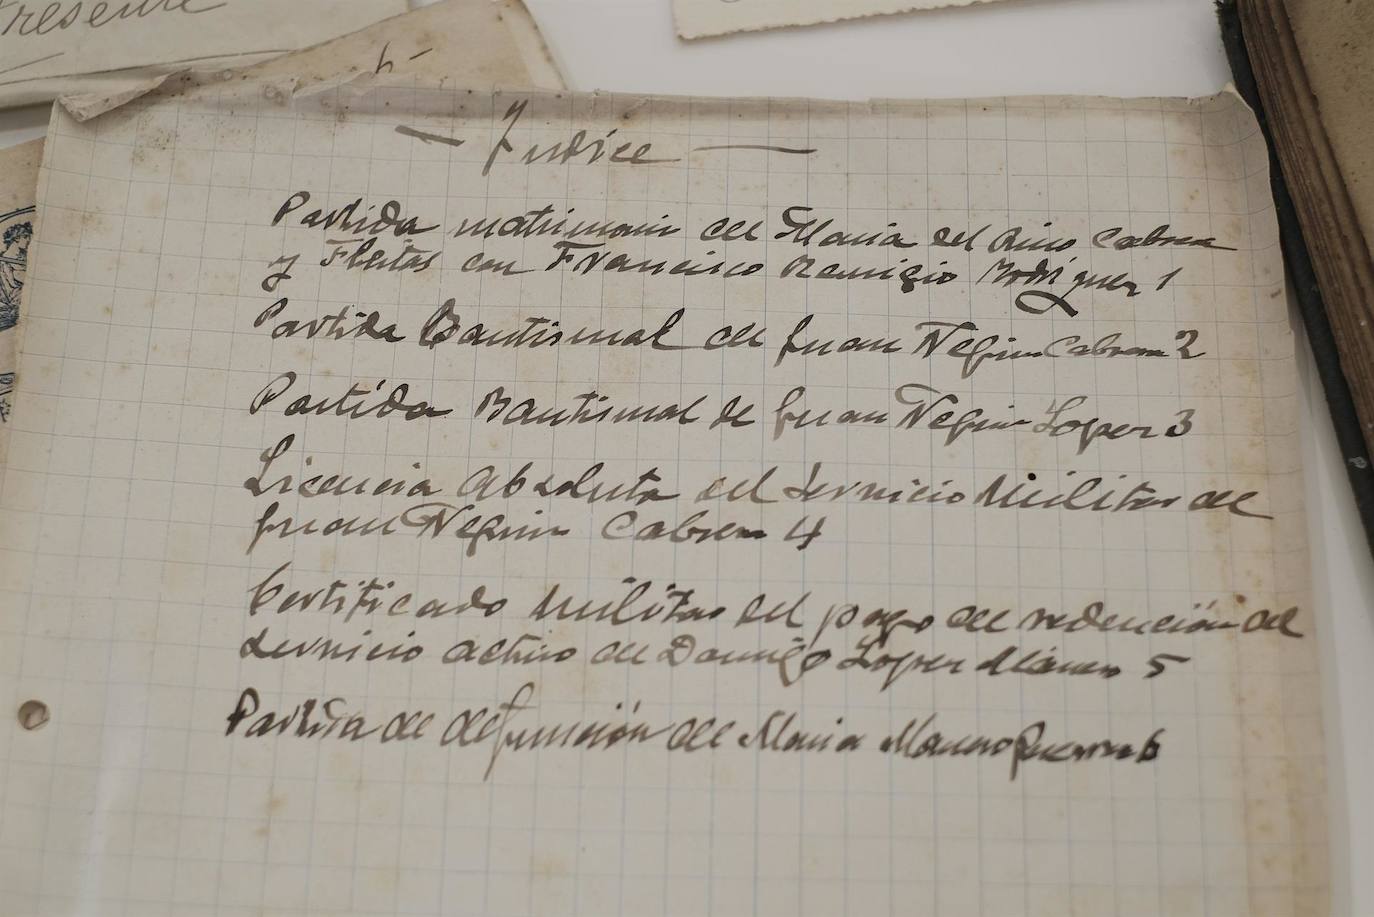 Presente
— Indice —
Partida matrimonio de Maria del Pino Cabrera
y Fleitas con Francisco Remigio Rodríguez 1
Partida Bautismal de Juan Negrin Cabrera 2
Partida Bautismal de Juan Negrin Lopez 3
Licencia Absoluta del Servicio Militar de
Juan Negrin Cabrera 4
Certificado Militar del pago de redención del
servicio activo de Domingo Lopez Marrero 5
Partida de defunción de Maria Marrero Guerra 6